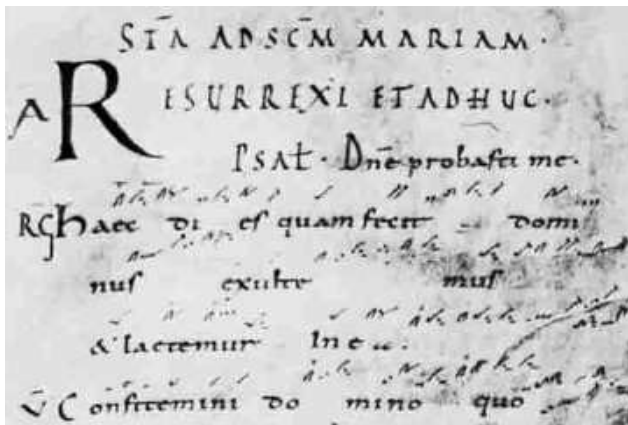 STA AD SCM MARIAM·
A RESURREXI ET ADHUC·
PSAL· Dne probasti me·
RG haec di es quam fecit domi
nus exulte mus
& laetemur In eo.
V Confitemini do mino quo